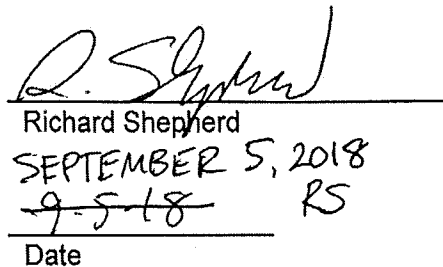 R. Shepherd
Richard Shepherd
SEPTEMBER 5, 2018
9-5-18 RS
Date